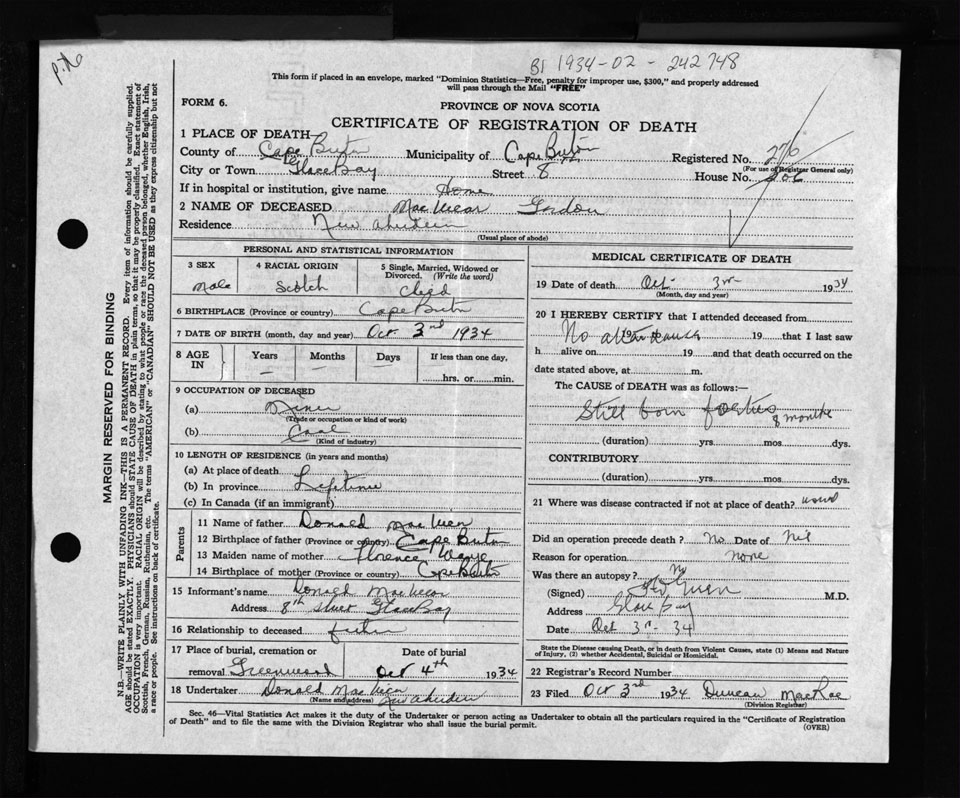 B1 1934-02-242748
This form if placed in an envelope, marked "Dominion Statistics—Free, penalty for improper use, $300," and properly addressed
will pass through the Mail "FREE"
FORM 6.
PROVINCE OF NOVA SCOTIA
CERTIFICATE OF REGISTRATION OF DEATH
1 PLACE OF DEATH
County of Cape Breton Municipality of Cape Breton Registered No. 276
(For use of Registrar General only)
City or Town Glace Bay Street 8 House No. 206
If in hospital or institution, give name Home
2 NAME OF DECEASED Gordon
Residence New Aberdeen
(Usual place of abode)
PERSONAL AND STATISTICAL INFORMATION
3 SEX Male
4 RACIAL ORIGIN Scotch
5 Single, Married, Widowed or Divorced. (Write the word) Child
6 BIRTHPLACE (Province or country) Cape Breton
7 DATE OF BIRTH (month, day and year) Oct 3rd 1934
8 AGE IN Years — Months — Days — If less than one day, hrs. or min.
9 OCCUPATION OF DECEASED
(a) Miner
(Trade or occupation or kind of work)
(b) Coal
(Kind of industry)
10 LENGTH OF RESIDENCE (in years and months)
(a) At place of death
(b) In province Lifetime
(c) In Canada (if an immigrant)
Parents
11 Name of father Donald
12 Birthplace of father (Province or country) Cape Breton
13 Maiden name of mother Florence
14 Birthplace of mother (Province or country) Cape Breton
15 Informant's name Donald
Address 8th Street Glace Bay
16 Relationship to deceased father
17 Place of burial, cremation or removal Greenwood Date of burial Oct 4th 1934
18 Undertaker Donald New Aberdeen
(Name and address)
MEDICAL CERTIFICATE OF DEATH
19 Date of death Oct 3rd 1934
(Month, day and year)
20 I HEREBY CERTIFY that I attended deceased from
No attendance 19 that I last saw
h alive on 19 and that death occurred on the
date stated above, at m.
The CAUSE OF DEATH was as follows:—
Still born foetus 8 months
(duration) yrs. mos. dys.
CONTRIBUTORY
(duration) yrs. mos. dys.
21 Where was disease contracted if not at place of death?
Did an operation precede death? No Date of Nil
Reason for operation none
Was there an autopsy? No
(Signed) M.D.
Address Glace Bay
Date Oct 3rd - 34
State the Disease causing Death, or in death from Violent Causes, state (1) Means and Nature
of Injury, (2) whether Accidental, Suicidal or Homicidal.
22 Registrar's Record Number
23 Filed Oct 3rd 1934 Duncan MacRae
(Division Registrar)
Sec. 46—Vital Statistics Act makes it the duty of the Undertaker or person acting as Undertaker to obtain all the particulars required in the "Certificate of Registration
of Death" and to file the same with the Division Registrar who shall issue the burial permit. (OVER)
MARGIN RESERVED FOR BINDING
N.B.—WRITE PLAINLY WITH UNFADING INK—THIS IS A PERMANENT RECORD. Every item of information should be carefully supplied.
AGE should be stated EXACTLY. PHYSICIANS should STATE CAUSE OF DEATH in plain terms, so that it may be properly classified. Exact statement of
OCCUPATION is very important. RACIAL ORIGIN will be described by stating to what people or race the deceased person belonged, whether English, Irish,
Scottish, French, German, Russian, Ruthenian, etc. The terms "AMERICAN" or "CANADIAN" SHOULD NOT BE USED as they express citizenship but not
a race or people. See instructions on back of certificate.